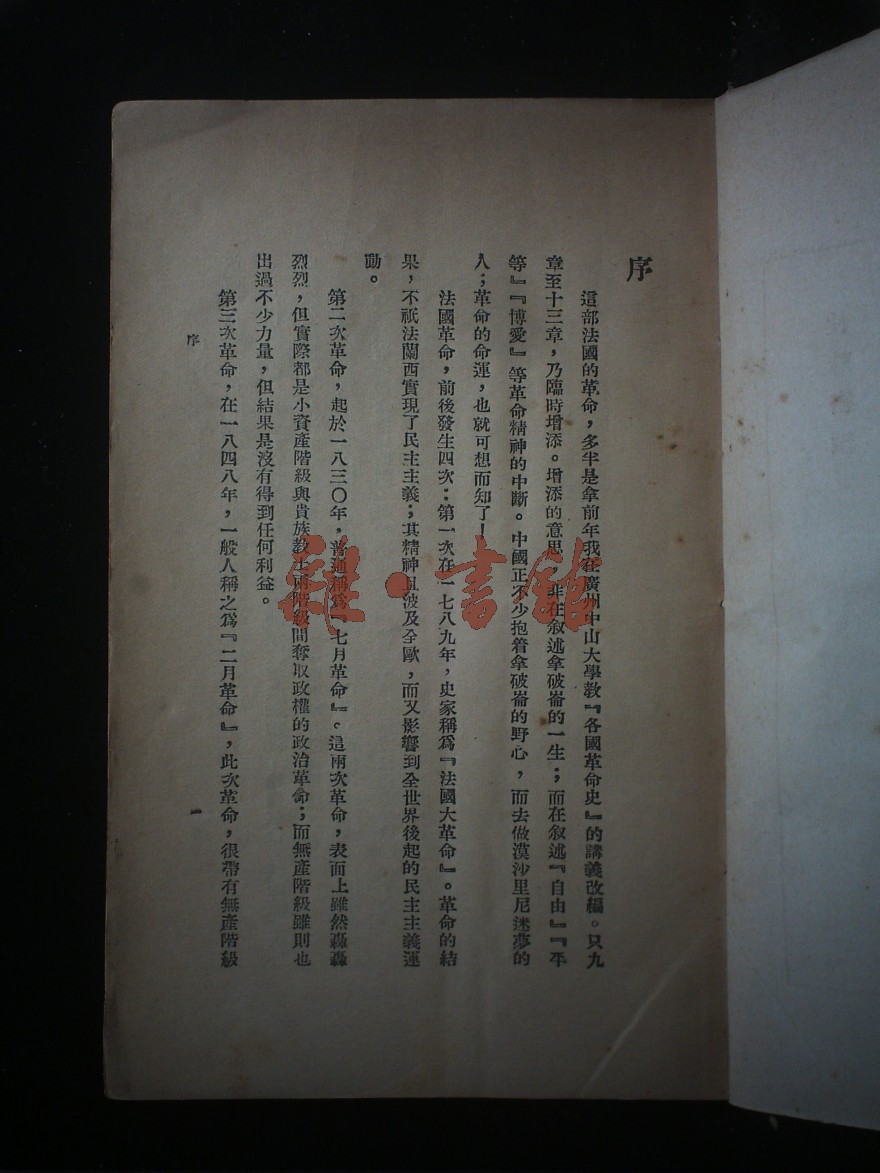 序
這部法國的革命，多半是拿前年我在廣州中山大學教『各國革命史』的講義改編。只九
章至十三章，乃臨時增添。增添的意思，非在叙述拿破崙的一生；而在叙述『自由』『平
等』『博愛』等革命精神的中斷。中國正不少抱着拿破崙的野心，而去做漠沙里尼迷夢的
人；革命的命運，也就可想而知了！
法國革命，前後發生四次：第一次在一七八九年，史家稱爲『法國大革命』。革命的結
果，不祇法蘭西實現了民主主義；其精神且波及全歐，而又影響到全世界後起的民主主義運
動。
第二次革命，起於一八三〇年，普通稱爲『七月革命』。這兩次革命，表面上雖然轟轟
烈烈，但實際都是小資產階級與貴族教士兩階級間奪取政權的政治革命；而無產階級雖則也
出過不少力量，但結果是沒有得到任何利益。
第三次革命，在一八四八年，一般人稱之爲『二月革命』，此次革命，很帶有無產階級
序
一
雜·書館